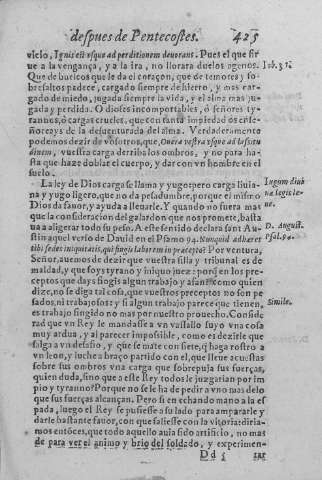 despues de Pentecostes. 425
vicio, Ignis est usque ad perditionem devorans. Pues el que sir
ue a la vengança, y a la ira, no llorara duelos agenos. Iob.31.
Que de buticos le da el coraçon, que de temores y so
bresaltos padece, cargado siempre de hierro, y mas car-
gado de miedo, jugada siempre la vida, y el alma mas ju
gada y perdida. O dioses incomportables, ò señores ty-
rannos, ò cargas crueles, que con tanta impiedad os ense-
ñoreays de la desuenturada del alma. Verdaderamento
podemos dezir de vosotros, que, Onera vestra usque ad lassitu
dinem, vuestra carga derriba los ombros, y no para has-
ta que haze doblar el cuerpo, y dar con vn hombre en el
suelo.
La ley de Dios carga se llama y yugo: pero carga liuia-
na y yugo ligero, que no da pesadumbre, porque el mismo
Dios da fauor, y ayuda a lleuarle. Y quando no fuera mas
que la consideracion del galardon que nos promete, basta
ua a aligerar todo su peso. A este sentido declara sant Au-
stin aquel verso de Dauid en el Psamo 94. Nunquid adhæret
tibi sedes iniquitatis, qui fingis laborem in præcepto? Por ventura,
Señor, auemos de dezir que vuestra silla y tribunal es de
maldad, y que soys tyrano y iniquo juez: porq̃ en los pre-
ceptos que days fingis algun trabajo y afan? como quien
dize, no se diga tal cosa, que vuestros preceptos no son pe
sados, ni trabajosos: y si algun trabajo parece que tienen,
es trabajo fingido no mas por nuestro prouecho. Conside
rad que vn Rey le mandasse a vn vassallo suyo vna cosa
muy ardua, y al parecer impossible, como es dezirle que
salga a vn desafio, y q̃ se mate con siete, q̃ haga rostro a
vn leon, y luche a braço partido con el, que lleue acuestas
sobre sus ombros vna carga que sobrepuja sus fuerças,
quien duda, sino que a este Rey todos le juzgarian por im
pio y tyranno? Porque no se le ha de pedir a vno mas delo
que sus fuerças alcançan. Pero si en echando mano a la es
pada, luego el Rey se pusiesse a su lado para ampararle y
darle bastante fauor, con que saliesse con la vitoria: diria-
mos entõces, que todo aquello auia sido artificio, no mas
de para ver el animo y brio del soldado, y experimen-
Iugum diui
næ legis le-
ue.
D. August.
Psal.94.
Simile.
Dd 5 tar